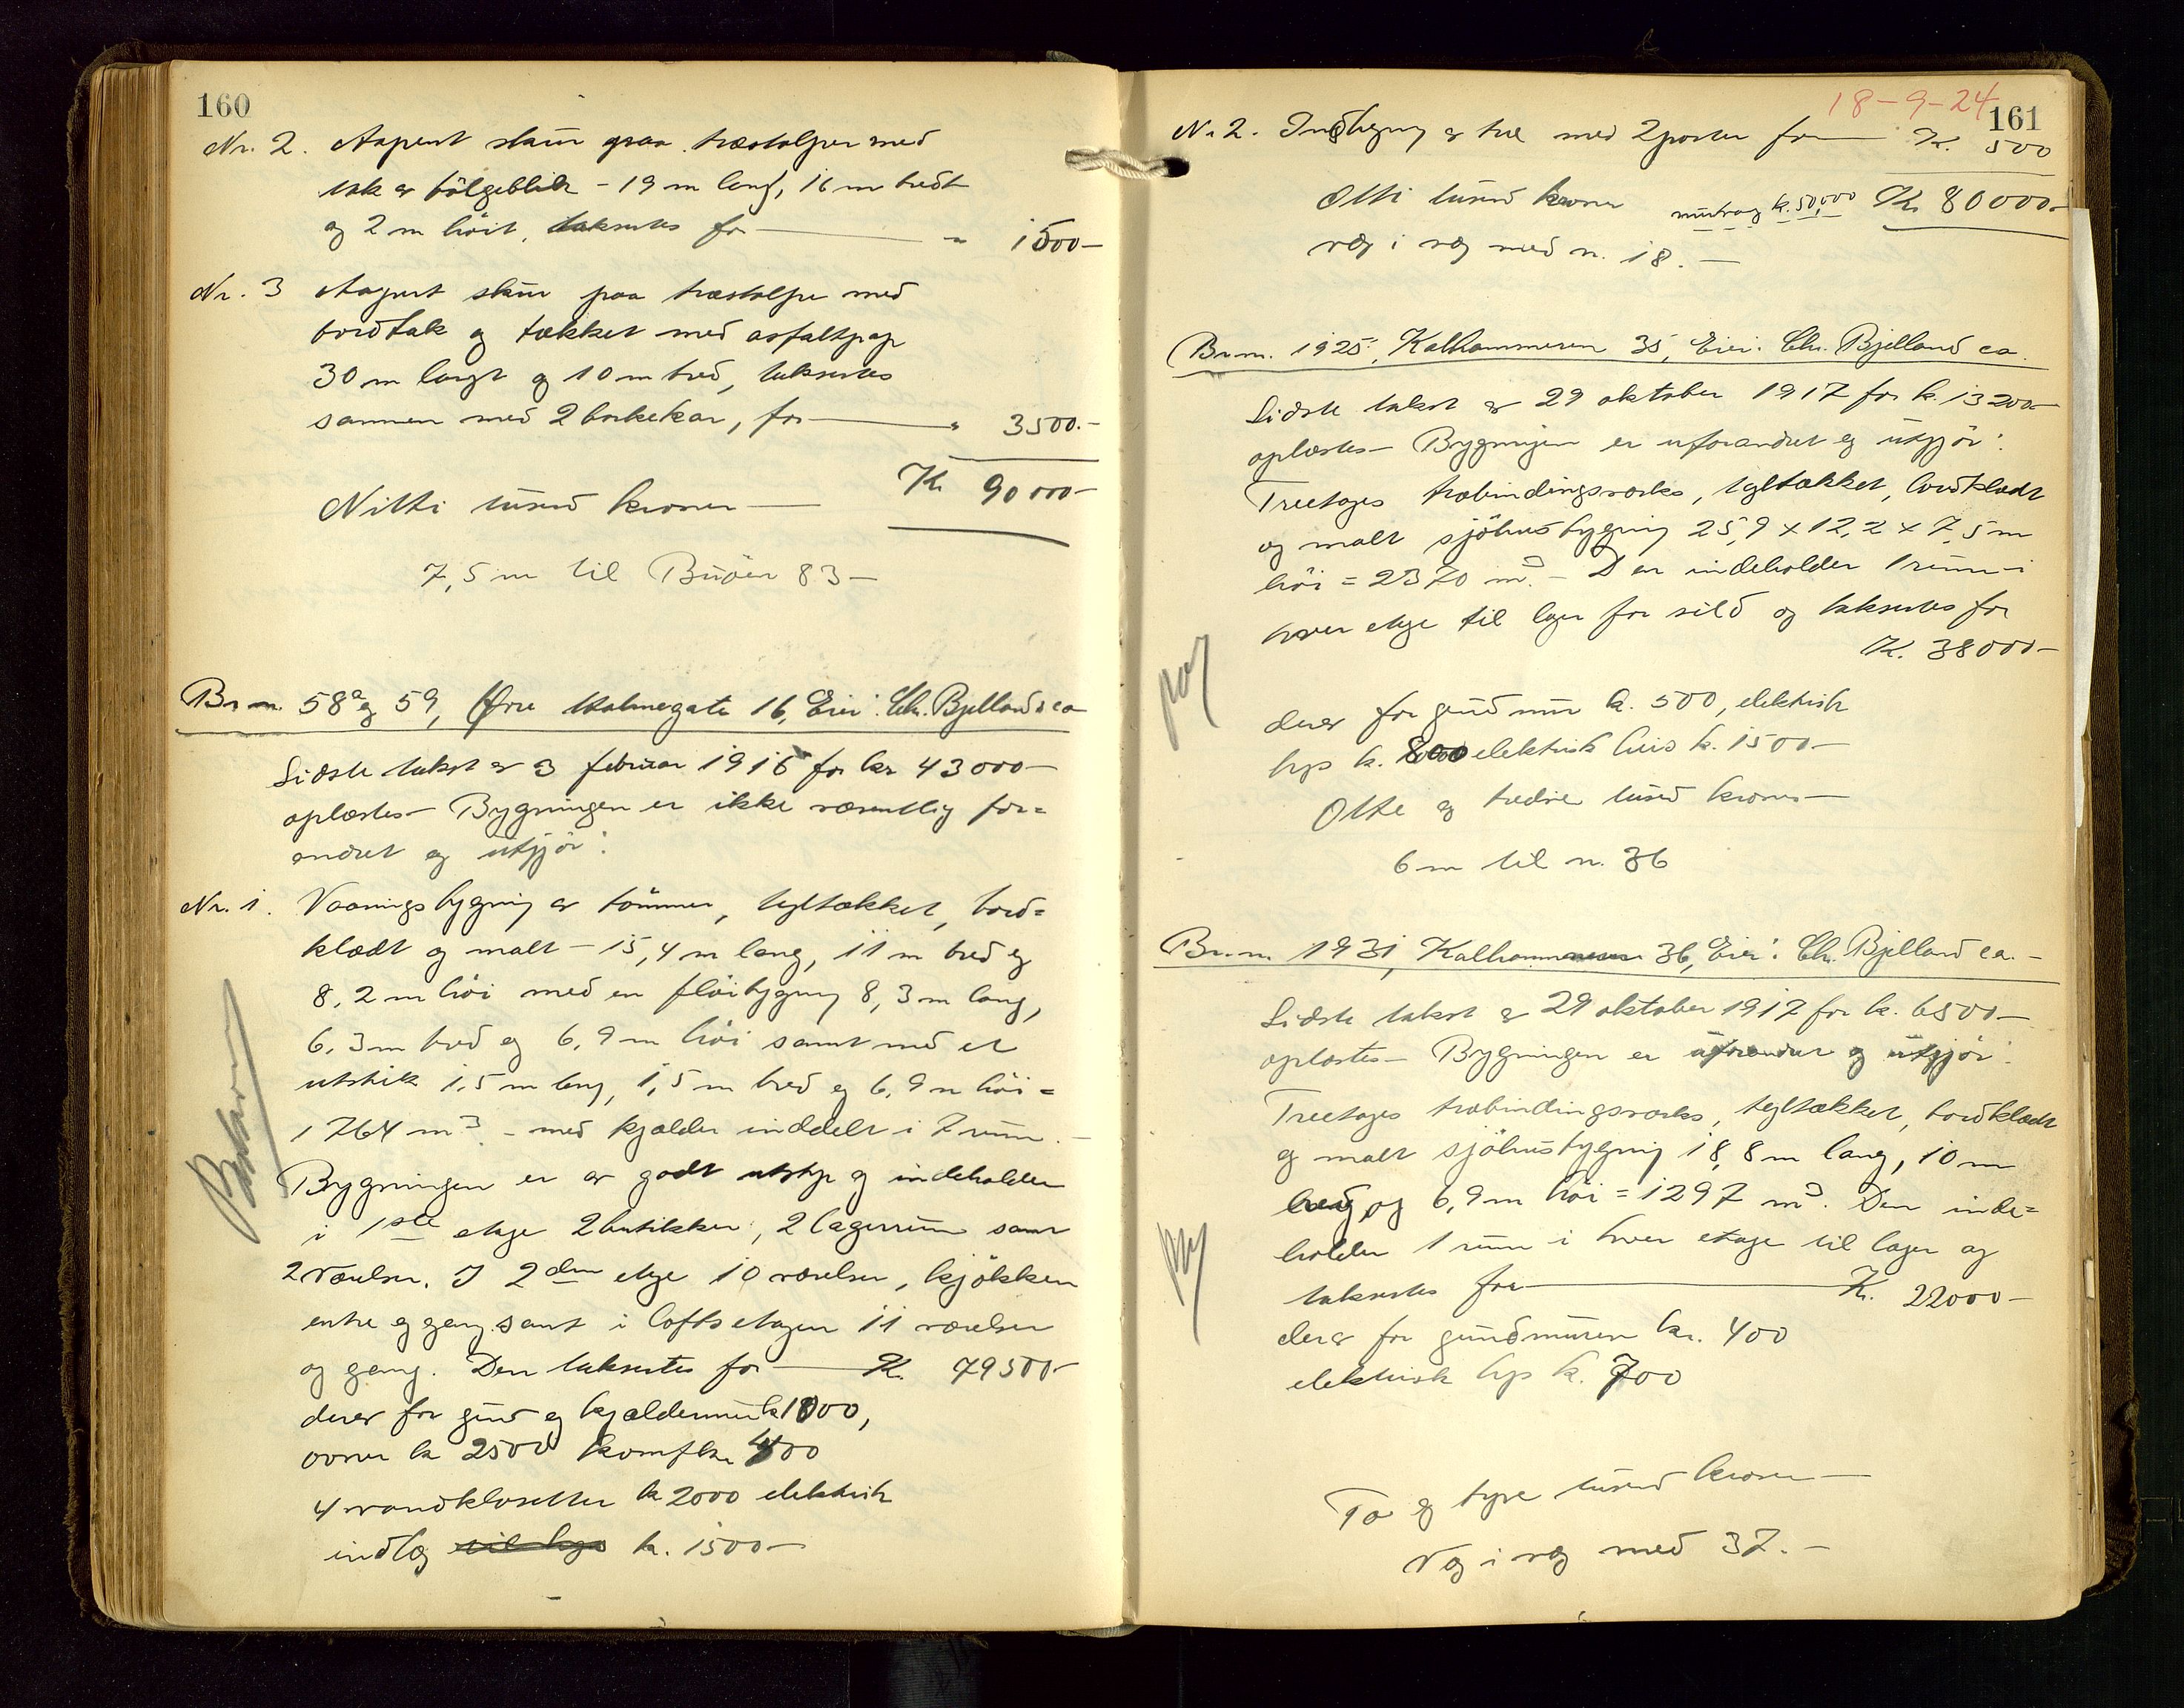 160
Nr. 2. Aapent skur paa træstolper med
tak av bölgeblik - 19 m lang, 16 m bredt
og 2 m höit, taksertes for — " 1500 -
Nr. 3 Aapent skur paa træstolper med
bordtak og tækket med asfaltpap
30 m langt og 10 m bred, taksertes
sammen med 2 barkekar, for — " 3500.-
Nitti tusind kroner — Kr 90 000 -
7,5 m til Buöen 83 -
Br.n. 58a og 59, Øvre Holmegate 16, Eier: Chr. Bjelland & co
Sidste takst av 3 februar 1916 for kr 43000 -
oplæstes - Bygningen er ikke væsentlig for=
andret og utgjör:
Nr. 1. Vaaningsbygning av tömmer, tegltækket, bord=
klædt og malt - 15,4 m lang, 11 m bred og
8,2 m höi med en flöibygning 8,3 m lang,
6,3 m bred og 6,9 m höi samt med et
utstik 1,5 m lang, 1,5 m bred og 6,9 m höi =
1764 m3 - med kjælder inddelt i 7 rum. -
Bygningen er av godt utstyr og indeholder
i 1ste etage 2 butikker, 2 lagerrum samt
2 værelser. I 2den etage 10 værelser, kjökken
entre og gang samt i loftsetagen 11 værelser
og gang. Den taksertes for — Kr. 79500 -
derav for grund og kjældermur k 1800,
ovner kr 2500 komf kr 400
4 vandklosetter kr 2000 elektrisk
indlæg til lys k. 1500 -
18-9-24
161
Nr 2. Indhegning av træ med 2 porter for — Kr. 500
Otti tusind kroner mutrag k. 50,000 Kr 80 000 -
væg i væg med n. 18. -
Br.n. 1925, Kalhammeren 35, Eier: Chr. Bjelland & co.
Sidste takst av 29 oktober 1917 for k. 13200 -
oplæstes - Bygningen er uforandret og utgjör:
Treetages træbindingsverks, tegltækket, bordklædt
og malt sjöhusbygning 25,9 x 12,2 x 7,5 m
höi = 2370 m3. - Den indeholder 1 rum i
hver etage til lager for sild og taksertes for
K. 38000 -
derav for grundmur k. 500, elektrisk
lys k. 800 elektrisk heis k. 1500 -
Otte og tredive tusind kroner -
6 m til n. 36
Br.n. 1931, Kalhammeren 36, Eier: Chr. Bjelland & co. -
Sidste takst av 29 oktober 1917 for k. 6500 -
oplæstes - Bygningen er uforandret og utgjör:
Treetages træbindingsverks, tegltækket, bordklædt
og malt sjöhusbygning 18,8 m lang, 10 m
bred, og 6,9 m höi = 1297 m3. Den inde=
holder 1 rum i hver etage til lager og
taksertes for — K. 22000 -
derav for grundmuren kr. 400
elektrisk lys k. 700
To og tyve tusind kroner -
Væg i væg med 37. -